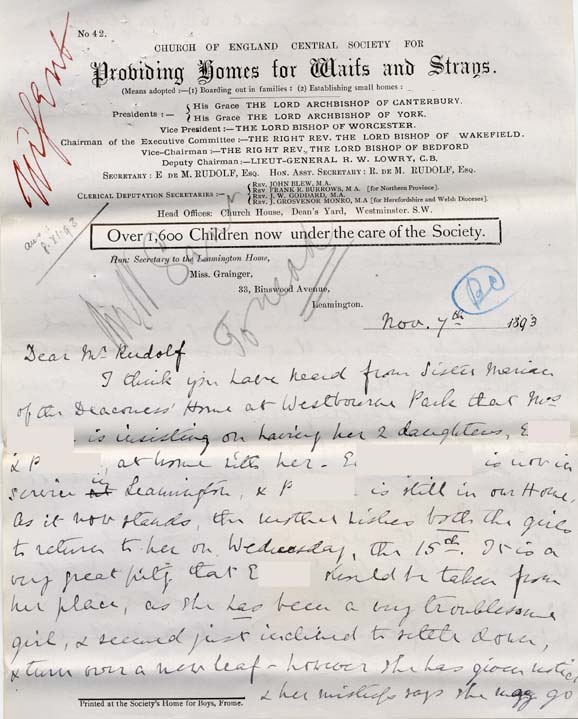 No 42.
Urgent
CHURCH OF ENGLAND CENTRAL SOCIETY FOR
Providing Homes for Waifs and Strays.
(Means adopted:—(1) Boarding out in families: (2) Establishing small homes:
Presidents:— { His Grace THE LORD ARCHBISHOP OF CANTERBURY.
His Grace THE LORD ARCHBISHOP OF YORK.
Vice President:—THE LORD BISHOP OF WORCESTER.
Chairman of the Executive Committee:—THE RIGHT REV. THE LORD BISHOP OF WAKEFIELD.
Vice-Chairman:—THE RIGHT REV. THE LORD BISHOP OF BEDFORD
Deputy Chairman:—LIEUT-GENERAL R. W. LOWRY, C.B.
SECRETARY: E DE M. RUDOLF, ESQ. HON. ASST. SECRETARY: R. DE M. RUDOLF, ESQ.
CLERICAL DEPUTATION SECRETARIES:— { REV. JOHN BLEW, M.A.
REV. FRANK R. BURROWS, M.A. [for Northern Province].
REV. J. W. GODDARD, M.A.
REV. J. GROSVENOR MONRO, M.A [for Herefordshire and Welsh Dioceses].
Head Offices: Church House, Dean's Yard, Westminster. S.W.
Over 1,600 Children now under the care of the Society.
Hon: Secretary to the Leamington Home,
Miss. Grainger,
33, Binswood Avenue,
Leamington.
Nov. 7th 1893
Dear Mr Rudolf
I think you have heard from Sister Marian
of the Deaconess' Home at Westbourne Park that Mrs
is insisting on having her 2 daughters, E
& P , at home with her - E is now in
service at Leamington, & P is still in our Home,
As it now stands, the mother wishes both the girls
to return to her on Wednesday, the 15th. It is a
very great pity that E should be taken from
her place, as she has been a very troublesome
girl, & seemed just inclined to settle down,
& turn over a new leaf - however she has given notice
& her mistress says she may go
Printed at the Society's Home for Boys, Frome.